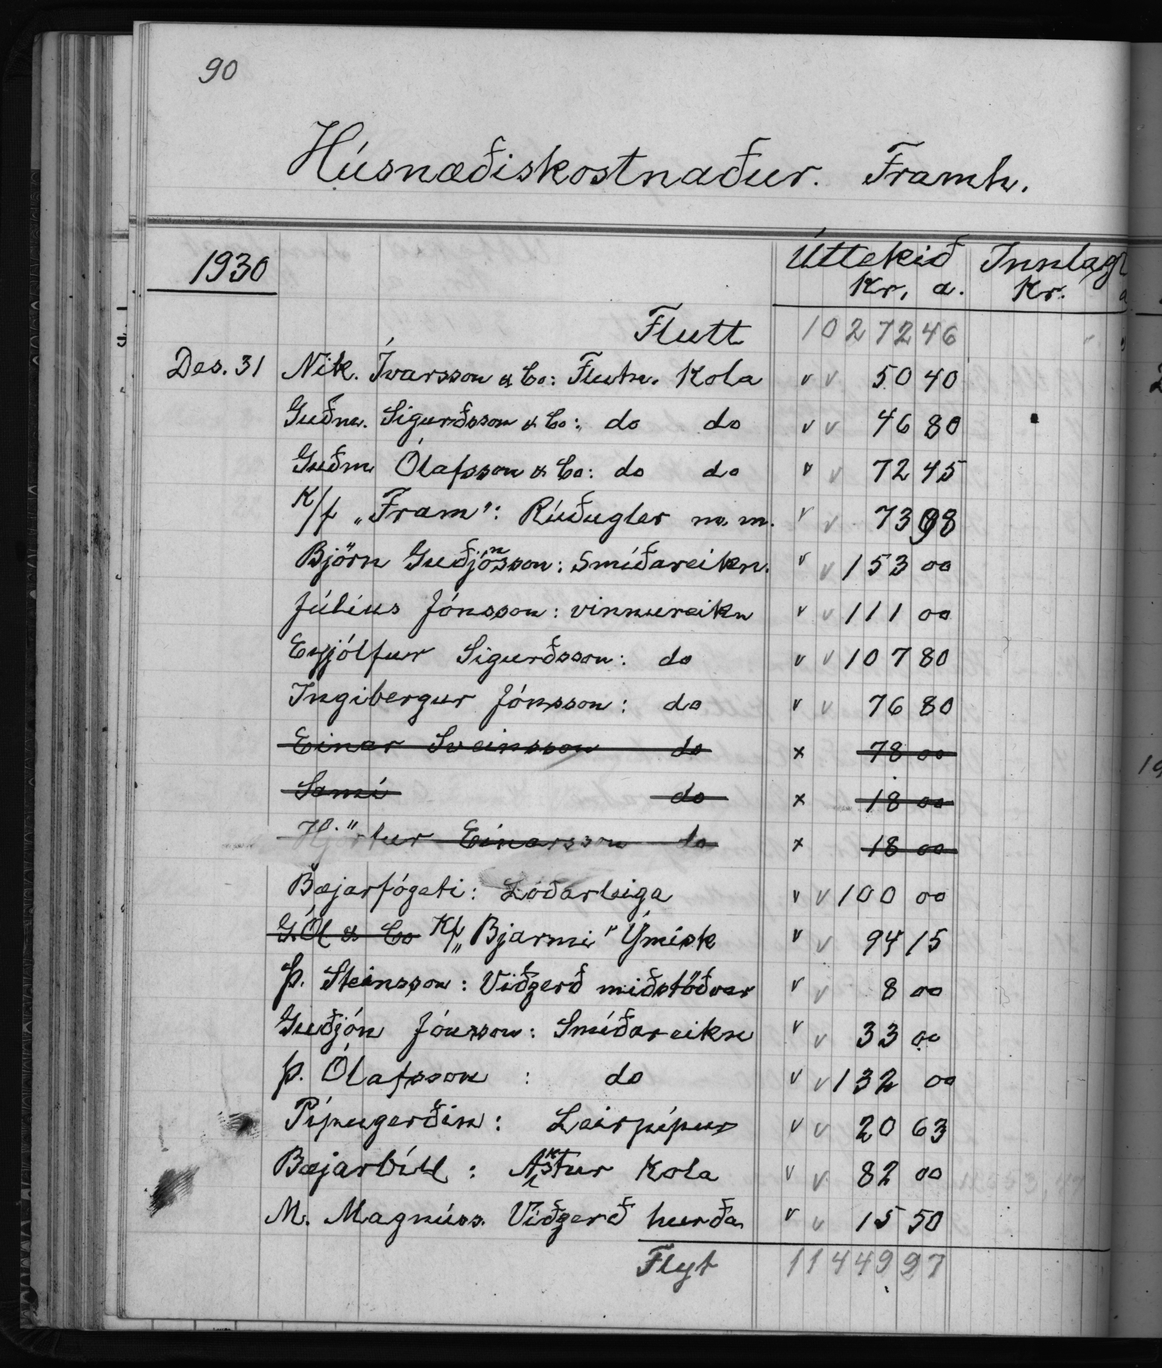 90
Húsnæðiskostnaður. Framh.
1930 Úttekið Innlagt
Kr. a. Kr. a
Flutt 10272 46
Des. 31 Nik. Ívarsson & Co: Flutn. Kola v v 50 40
Guðm. Sigurðsson & Co: do do v v 46 80
Guðm Ólafsson & Co: do do v v 72 45
K/f „Fram“: Rúðugler m. m. v v 73 98
Björn Guðjónsson: Smíðareikn. v v 153 00
Júlíus Jónsson: vinnureikn v v 111 00
Eyjólfur Sigurðsson: do v v 107 80
Ingibergur Jónsson: do v v 76 80
Einar Sveinsson do x 78 00
Sami do x 18 00
Hjörtur Einarsson do x 18 00
Bæjarfógeti: Lóðarleiga v v 100 00
G. Ól & Co Kf „Bjarmi“ Ýmisk v v 94 15
Þ. Steinsson: Viðgerð miðstöðvar v v 8 00
Guðjón Jónsson: Smíðareikn v v 33 00
Þ. Ólafsson : do v v 132 00
Pípugerðin: Leirpípur v v 20 63
Bæjarbíll : Akstur Kola v v 82 00
M. Magnúss. Viðgerð hurða v v 15 50
Flyt 11449 97